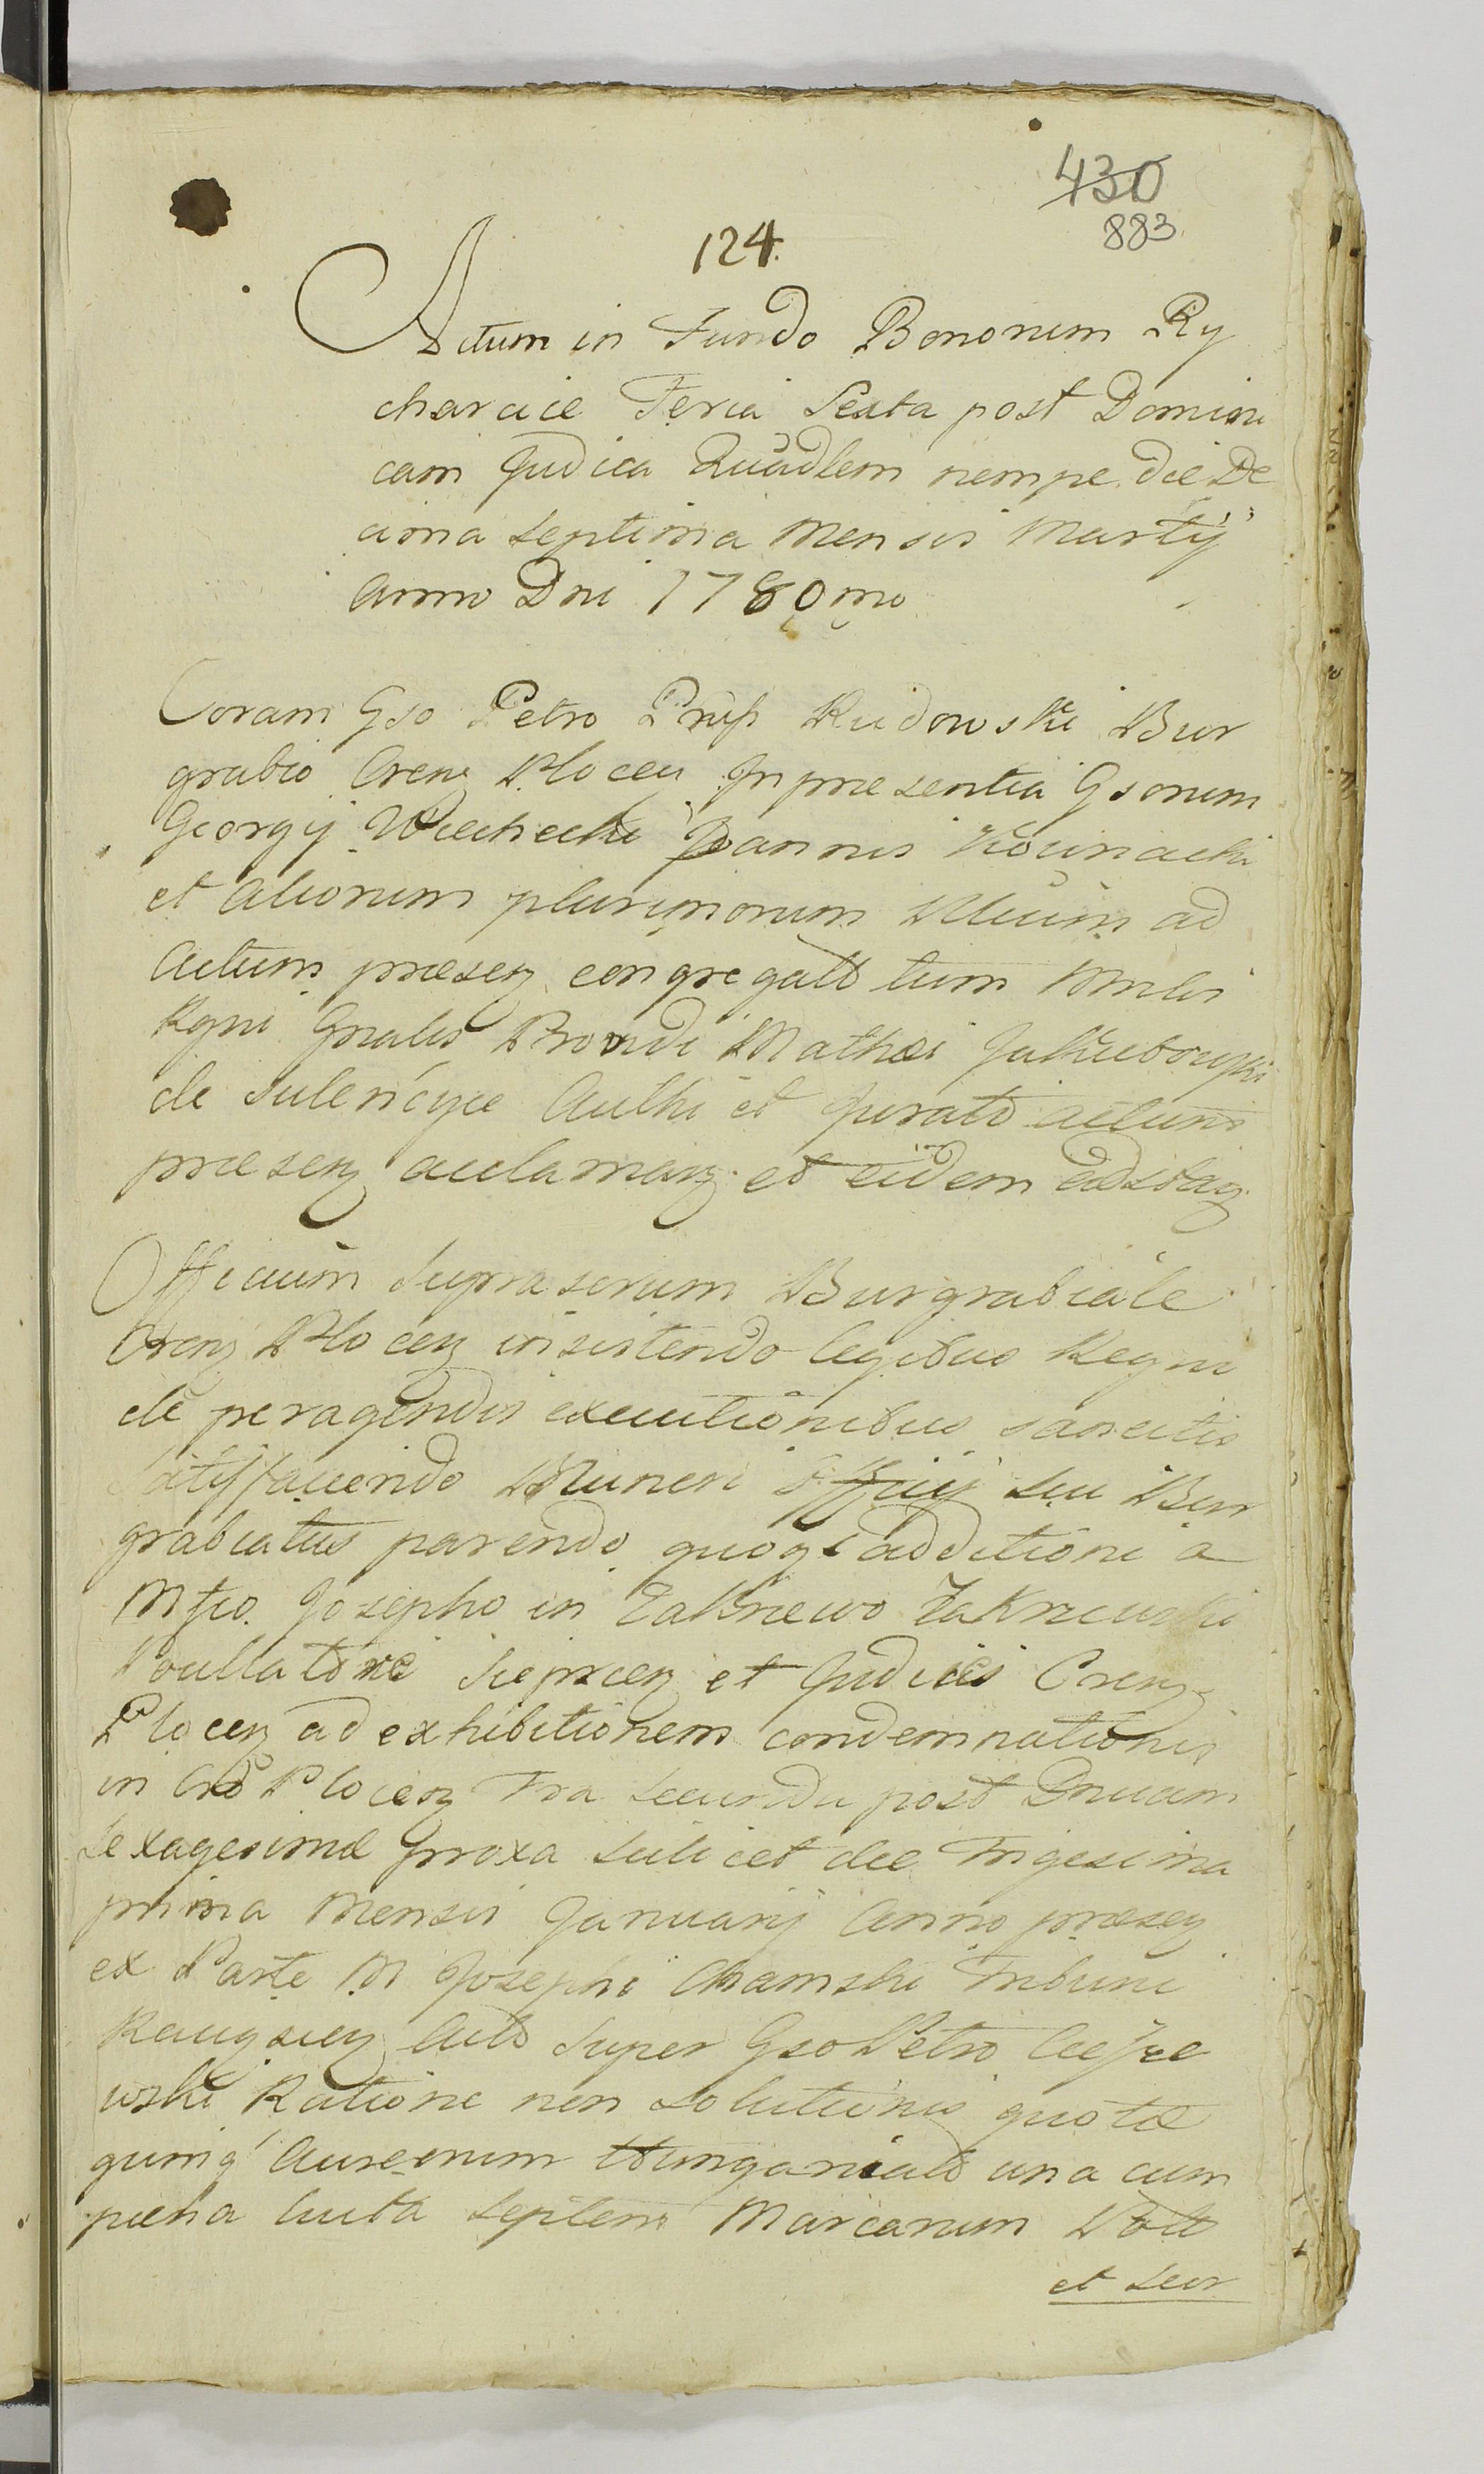 430
883
124.
Actum in Fundo Bonorum Ry
charcice Feria Sexta post Domini
cam Judica Quadlem nempe die De
cima Septima Mensis Martÿ
Anno Dni 1780mo
Coram Gso Petro Rudowski Bur
grabio Cren Plocen In præsentia Gsorum
Georgij Joannis
et aliorum plurimorum ad
Actum præsen congregato tum
Rgni Gnalis Providi Mathæi Jakubowski
de Authi et Jurato actum
præsen acclaman et eidem adstan
Officium Suprascrum Burgrabiale
Cren Plocen insistendo legibus Regni
de peragendis executionibus sancitis
Satisfaciendo Muneri Officij Sui Bur
grabiatus parendo quoq additioni a
Mfco Josepho in Zakrzewo Zakrzewski
Siepricen et Judicis Cren
Plocen ad exhibitionem condemnationis
in Cro Plocen Fra Secunda post Dnicam
Sexagesimæ proxa scilicet die Trigesima
prima Mensis Januarij Anno præsen
ex Parte M Josephi Chamski Tribuni
Racionsien Acto Super Gso Petro
wski Ratione non Solutionis quotæ
quinq Aureorum Hungaricalo una cum
pæna luita Septem Marcarum Pol
et Sear